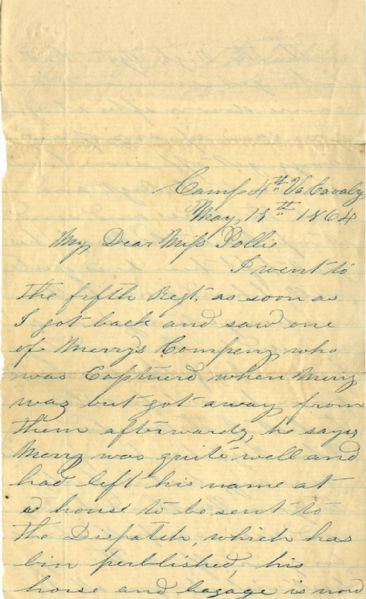 Camp 4th Va Cavalry
May, 13th 1864
My Dear Miss Pollie
I went to
the fifth Regt. as soon as
I got back and saw one
of Merrys Company who
was Captured, when Merry
was but got away from
them afterwards, he says
Merry was quite well and
had left his name at
a house to be sent to
the Dispatch, which has
bin perblished, his
horse and bagage is now